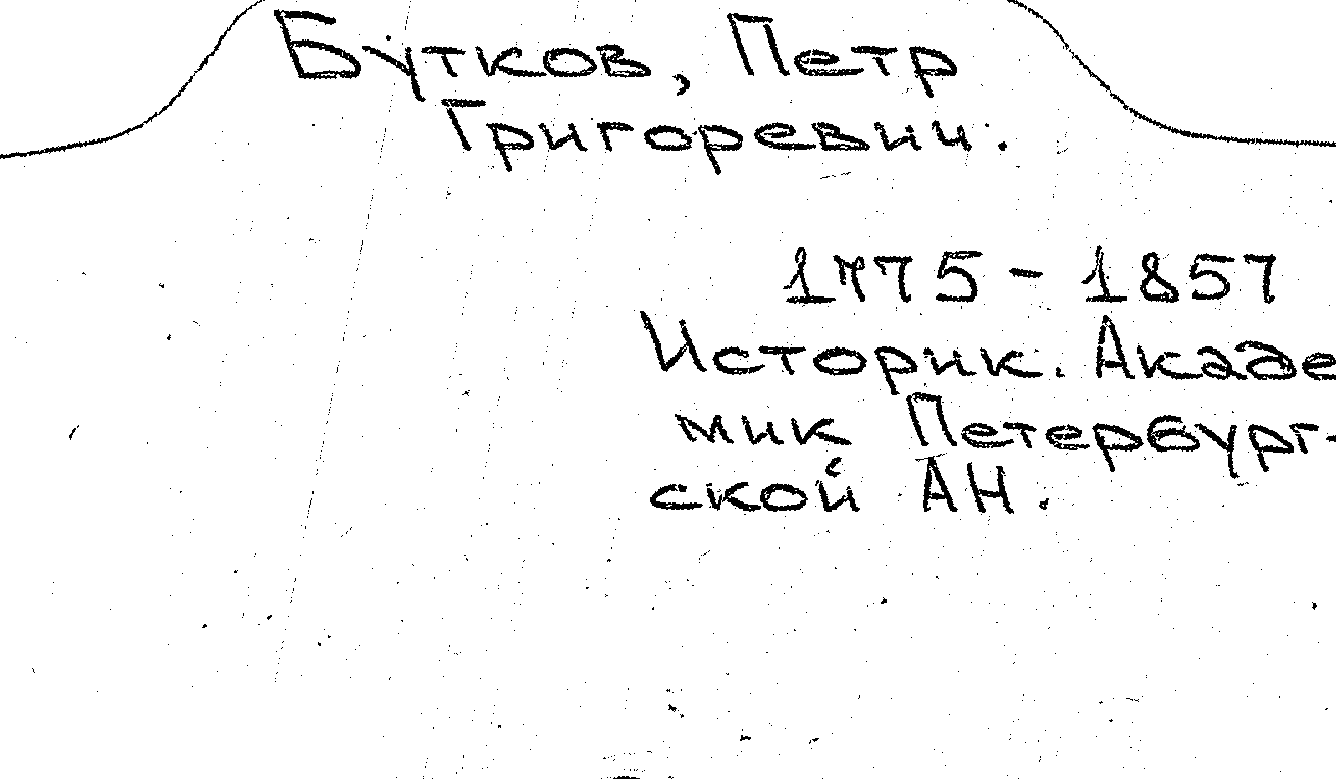 Бутков, Петр
Григоревич.
1775 - 1857
Историк. Акаде
мик Петербург-
ской АН.